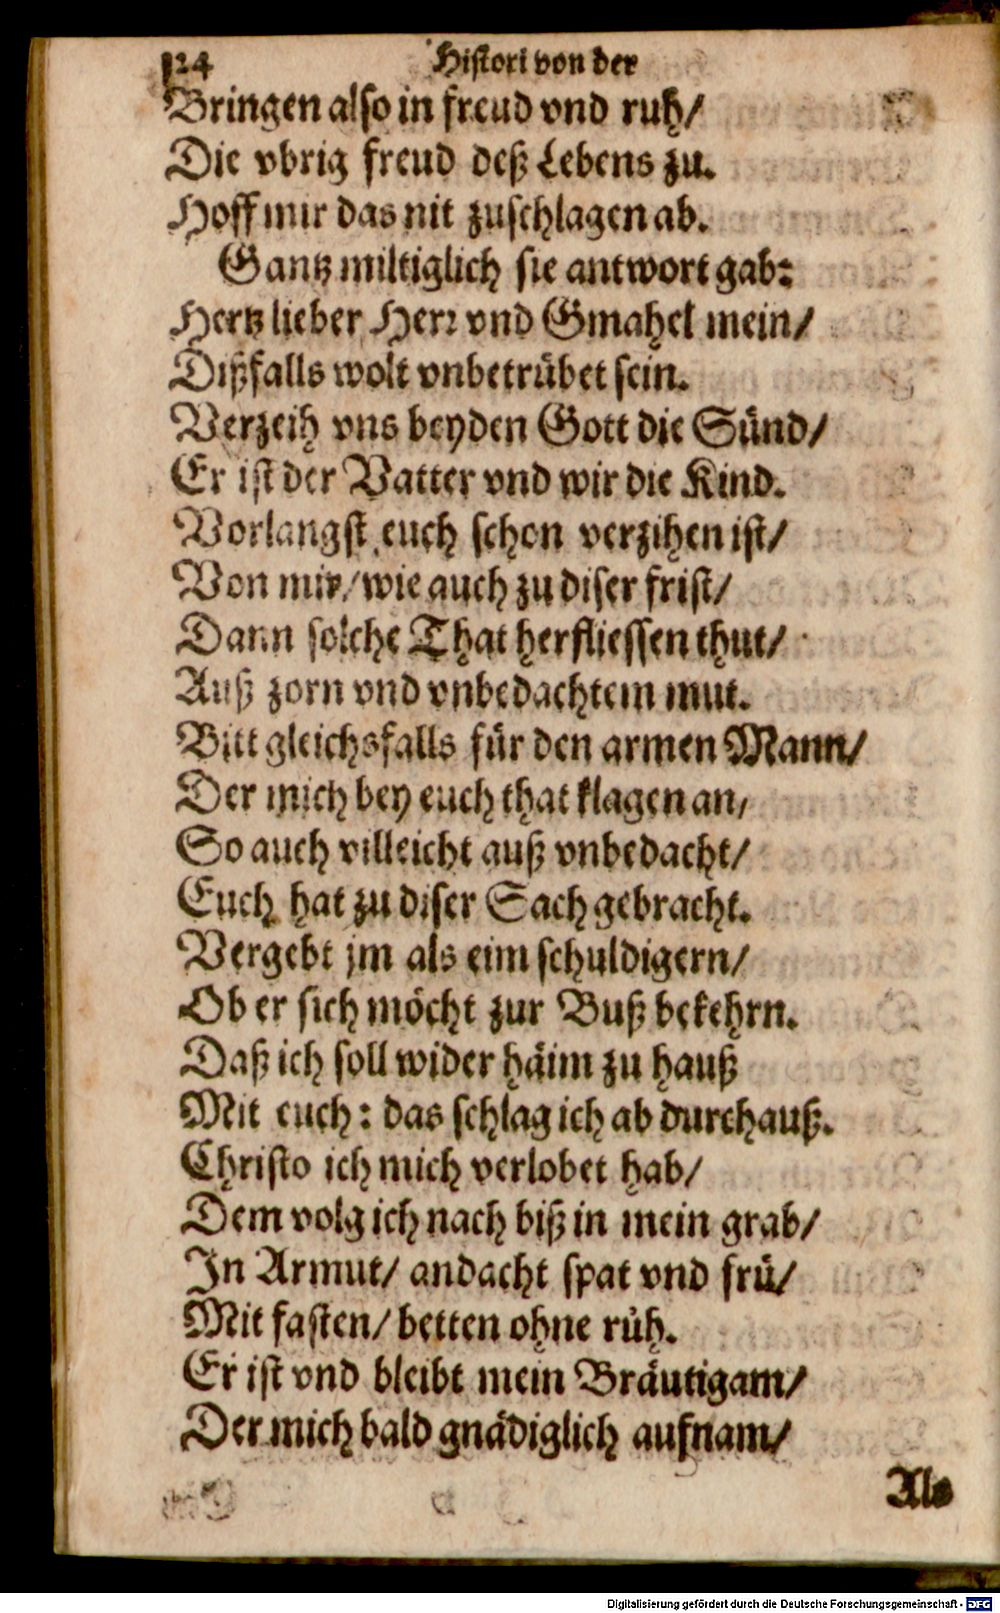 124 Histori von der
Bringen also in freud vnd ruh/
Die vbrig freud deß Lebens zu.
Hoff mir das nit zuschlagen ab.
Gantz miltiglich sie antwort gab:
Hertz lieber Herr vnd Gmahel mein/
Dißfalls wolt vnbetrübet sein.
Verzeih vns beyden Gott die Sünd/
Er ist der Vatter vnd wir die Kind.
Vorlangst euch schon verzihen ist/
Von mir/ wie auch zu diser frist/
Dann solche That herfliessen thut/
Auß zorn vnd vnbedachtem mut.
Bitt gleichsfalls für den armen Mann/
Der mich bey euch that klagen an/
So auch villeicht auß vnbedacht/
Euch hat zu diser Sach gebracht.
Vergebt jm als eim schuldigern/
Ob er sich möcht zur Buß bekehrn.
Daß ich soll wider häim zu hauß
Mit euch: das schlag ich ab durchauß.
Christo ich mich verlobet hab/
Dem volg ich nach biß in mein grab/
In Armut/ andacht spat vnd frü/
Mit fasten/ betten ohne rüh.
Er ist vnd bleibt mein Bräutigam/
Der mich bald gnädiglich aufnam/
Als
Digitalisierung gefördert durch die Deutsche Forschungsgemeinschaft - DFG